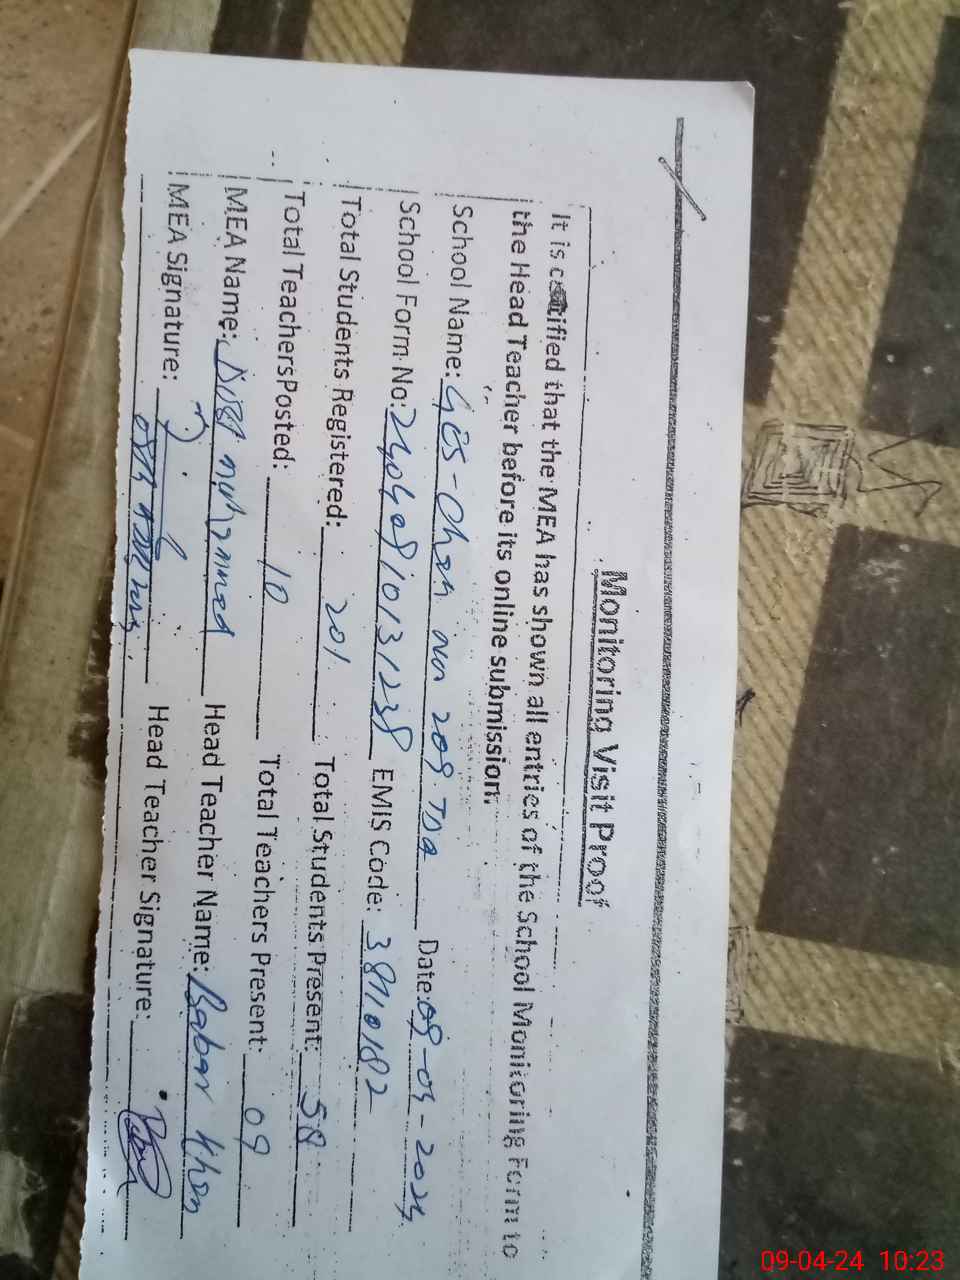 Monitoring Visit Proof
It is certified that the MEA has shown all entries of the School Monitoring Form to
the Head Teacher before its online submission.
School Name: GES-Chah no 209 TDA Date: 09-03-2024
School Form No: EMIS Code:
Total Students Registered: 201 Total Students Present: 58
Total Teachers Posted: 10 Total Teachers Present: 09
MEA Name: Head Teacher Name: Babar Khan
MEA Signature: Head Teacher Signature:
09-04-24 10:23